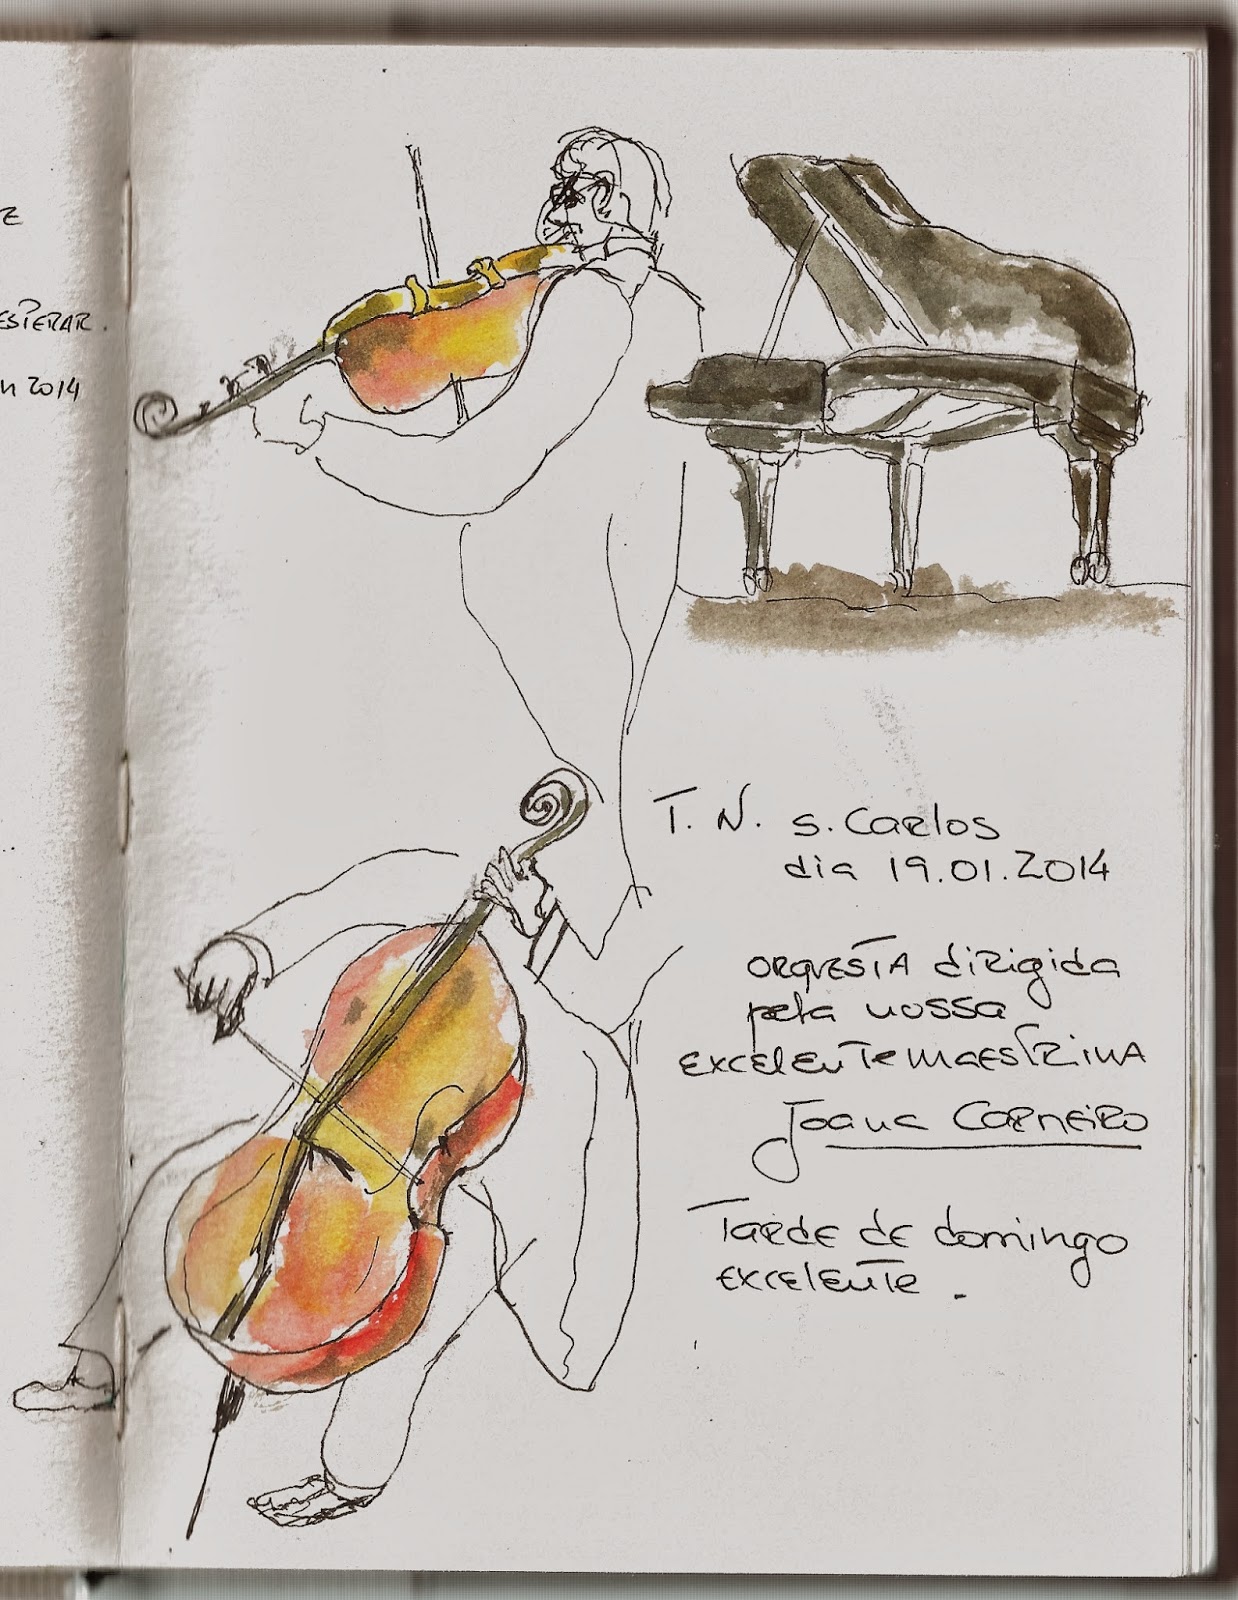 ESPERAR.
2014
T. N. S. Carlos
dia 19.01.2014
ORQUESTA dirigida
pela nossa
EXCELENTE MAESTRINA
Joana Carneiro
TARDE DE domingo
EXCELENTE.